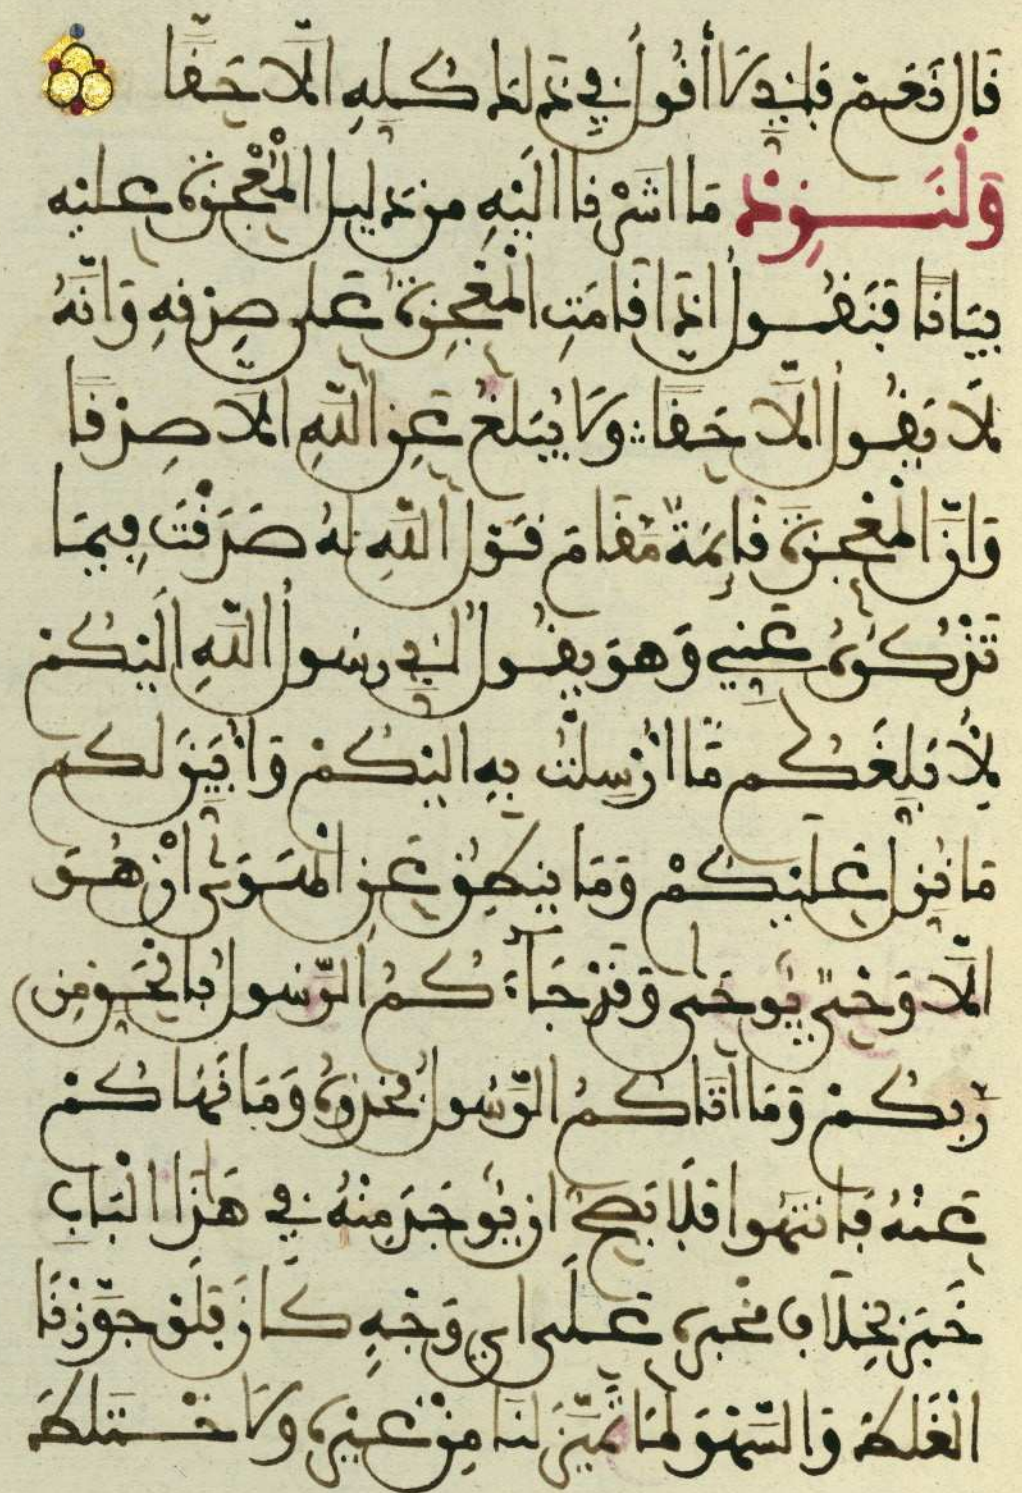 قَالَ نَعَمْ فَإِنِّي لَا أَقُولُ فِي ذَلِكَ كُلِّهِ إِلَّا حَقًّا
وَلْنَزِدْ مَا أَشَرْنَا إِلَيْهِ مِنْ دَلِيلِ الْمُعْجِزَةِ عَلَيْهِ
بَيَانًا فَنَقُولُ إِذَا قَامَتِ الْمُعْجِزَةُ عَلَى صِدْقِهِ وَأَنَّهُ
لَا يَقُولُ إِلَّا حَقًّا وَلَا يُبَلِّغُ عَنِ اللَّهِ إِلَّا صِدْقًا
وَأَنَّ الْمُعْجِزَةَ قَائِمَةٌ مَقَامَ قَوْلِ اللَّهِ لَهُ صَدَقْتَ فِيمَا
تَذْكُرُهُ عَنِّي وَهُوَ يَقُولُ إِنِّي رَسُولُ اللَّهِ إِلَيْكُمْ
لِأُبَلِّغَكُمْ مَا أُرْسِلْتُ بِهِ إِلَيْكُمْ وَأُبَيِّنَ لَكُمْ
مَا نُزِّلَ عَلَيْكُمْ وَمَا يَنْطِقُ عَنِ الْهَوَى إِنْ هُوَ
إِلَّا وَحْيٌ يُوحَى وَقَدْ جَاءَكُمُ الرَّسُولُ بِالْحَقِّ مِنْ
رَبِّكُمْ وَمَا آتَاكُمُ الرَّسُولُ فَخُذُوهُ وَمَا نَهَاكُمْ
عَنْهُ فَانْتَهُوا فَلَا يَصِحُّ أَنْ يُوجَدَ مِنْهُ فِي هَذَا الْبَابِ
خَبَرٌ بِخِلَافِ مُخْبَرِهِ عَلَى أَيِّ وَجْهٍ كَانَ فَلَوْ جَوَّزْنَا
الْغَلَطَ وَالسَّهْوَ لَمَا تَمَيَّزَ لَنَا مِنْ غَيْرِهِ وَلَاخْتَلَطَ